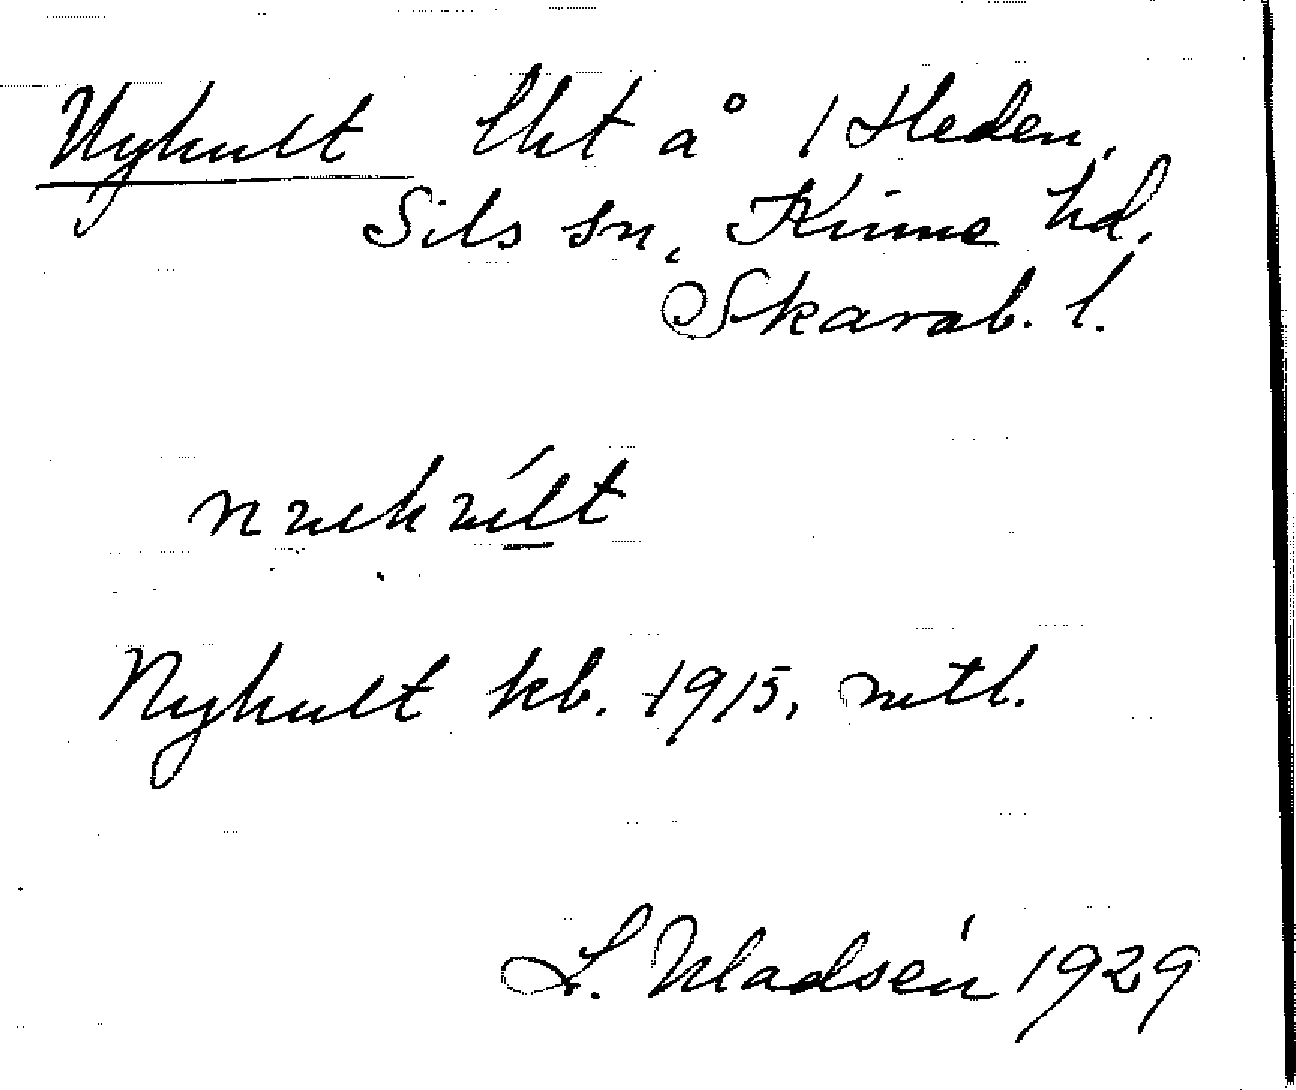 Nyhult lht å 1 Heden,
Sils sn, Kinne hd.
Skarab. l.
Nyhult kb. 1915, mtl.
L. Madsén 1929